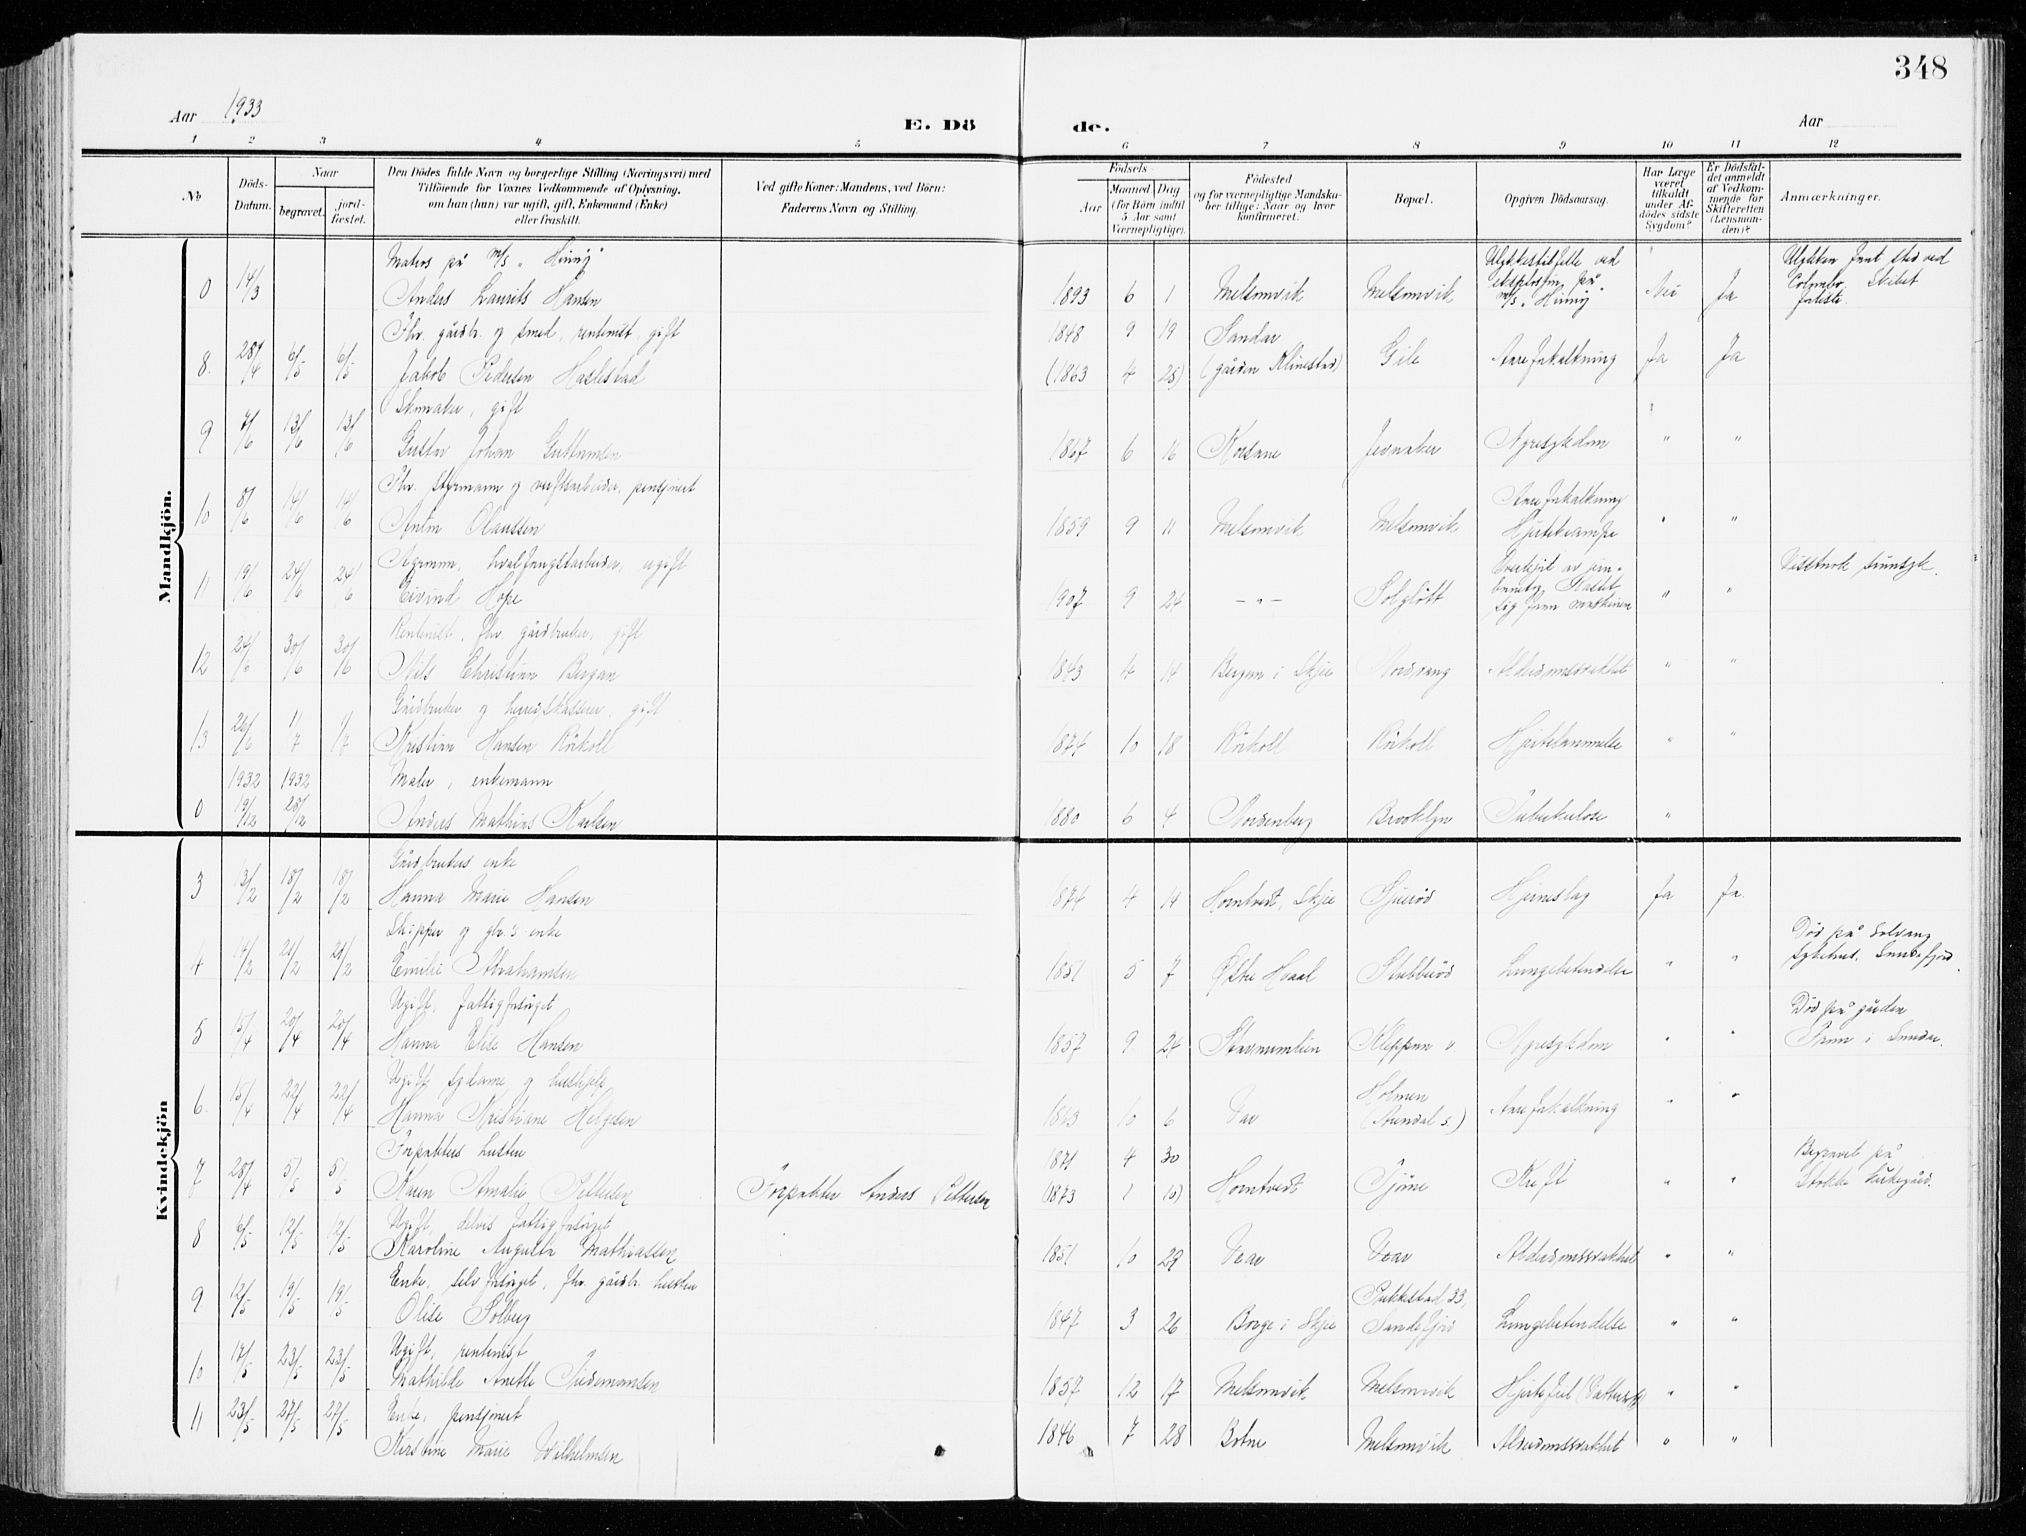 348
Aar 1933
E. Dö
de.
Aar
1 2 3 4 5 6 7 8 9 10 11 12
No
Döds-Datum.
Naar
begravet.
jord-fæstet.
Den Dödes fulde Navn og borgerlige Stilling (Næringsvei) med
Tilföiende for Voxnes Vedkommende af Oplysning,
om hun (han) var ugift, gift, Enkemand (Enke)
eller fraskilt.
Ved gifte Koner: Mandens, ved Börn:
Faderens Navn og Stilling.
Födsels-
Aar
Maaned Dag
(for Börn indtil
5 Aar samt
Værnepligtige).
Födested
og for værnepligtige Mandska-
ber tillige: Naar og hvor
konfirmeret.
Bopæl.
Opgiven Dödsaarsag.
Har Læge
været
tilkaldt
under Af-
dödes sidste
Sygdom?
Er Dödsfal-
det anmeldt
af Vedkom-
mende for
Skifteretten
(Lensman-
den)?
Anmærkninger.
Mandkjön.
Matros på m/s "Himöy"
0 14/3 Anders Laurits Hansen 1893 6 1 Melsomvik Melsomvik Ulykkestilfelle ved eksplosjon på m/s "Himöy" Nei Ja
Fhv. gårdbr. og smed, rentenist, gift
8. 28/4 6/5 6/5 Jakob Pedersen Haslestad 1848 9 19 Sandar Gile Aareforkalkning Ja Ja
(1863 4 25) (gården Klinestad)
Skomaker, gift
9 7/6 13/6 13/6 Gustav Johan Guttormsen 1867 6 16 Kodal Jevnaker Nyresykdom " "
Fhv. styrmann og verftsarbeider, pensjonert
10 8/6 14/6 14/6 Anton Olaussen 1859 9 11 Melsomvik Melsomvik Aareforkalkning Hjertekrampe " "
Agronom, hvalfangstarbeider, ugift
11 19/6 24/6 24/6 Eivind Hope 1907 9 24 - " - Solgløtt " " Visstnok sinnsyk.
Rentenist, fhv. gårdbruker, gift
12 24/6 30/6 30/6 Nils Christian Bergan 1843 4 14 Bergan i Skjee Nordvang Alderdomssvakhet " "
Gårdbruker og herredskasserer, gift
13 26/6 1/7 1/7 Kristian Hansen Råkoll 1874 10 18 Råkoll Råkoll Hjertelammelse " "
1932 1932 Maler, enkemann
0 19/12 28/12 Anders Mathias Karlsen 1880 6 4 Nordenberg Brooklyn Tuberkulose "
Kvindekjön
Gårdbrukers enke
3 13/2 18/2 18/2 Hanna Marie Hansen 1874 4 14 Horntvedt, Skjee Tjuerød Hjerneslag Ja Ja.
Skipper og gbr.s enke
4 14/2 21/2 21/2 Emilie Abrahamsen 1851 5 7 Østre Hvaal Stubberød Lungebetendelse " " Død på Solvang Sykehus, Sandefjord.
Ugift, fattigforsörget
5 15/4 20/4 20/4 Hanna Elise Hansen 1857 9 24 Stavnumlien Kleppan v. Nyresykdom " " Død på gården i Sandar.
Ugift, sydame og hushjelp
6. 15/4 22/4 22/4 Hanna Kristiane Helgesen 1863 10 6 Vear Holmen (Arendal s.) Aareforkalkning " "
Forpakters hustru
7 28/4 5/5 5/5 Karen Amalie Pettersen Forpakter Anders Pettersen 1871 4 30 Horntvedt Tjöme Kreft " " Begravet på Stokke kirkegård.
(1873 1 10)
Ugift, delvis fattigforsörget
8 6/5 12/5 12/5 Karoline Augusta Mathiassen 1851 10 29 Vear Vear Alderdomssvakhet " "
Enke, selvforsörget, fhv. gårdbr. hustru
9 12/5 19/5 19/5 Olise Solberg 1847 3 26 Borge i Skjee Pukkestad 33, Sandefjord Lungebetendelse " "
Ugift, rentenist
10 17/5 23/5 23/5 Mathilde Anette Tidemansen 1857 12 17 Melsomvik Melsomvik Hjertefeil " "
Enke, pensjonert
11 23/5 27/5 27/5 Kirstine Marie Wilhelmsen 1846 7 28 Botne Melsomvik Alderdomssvakhet " "